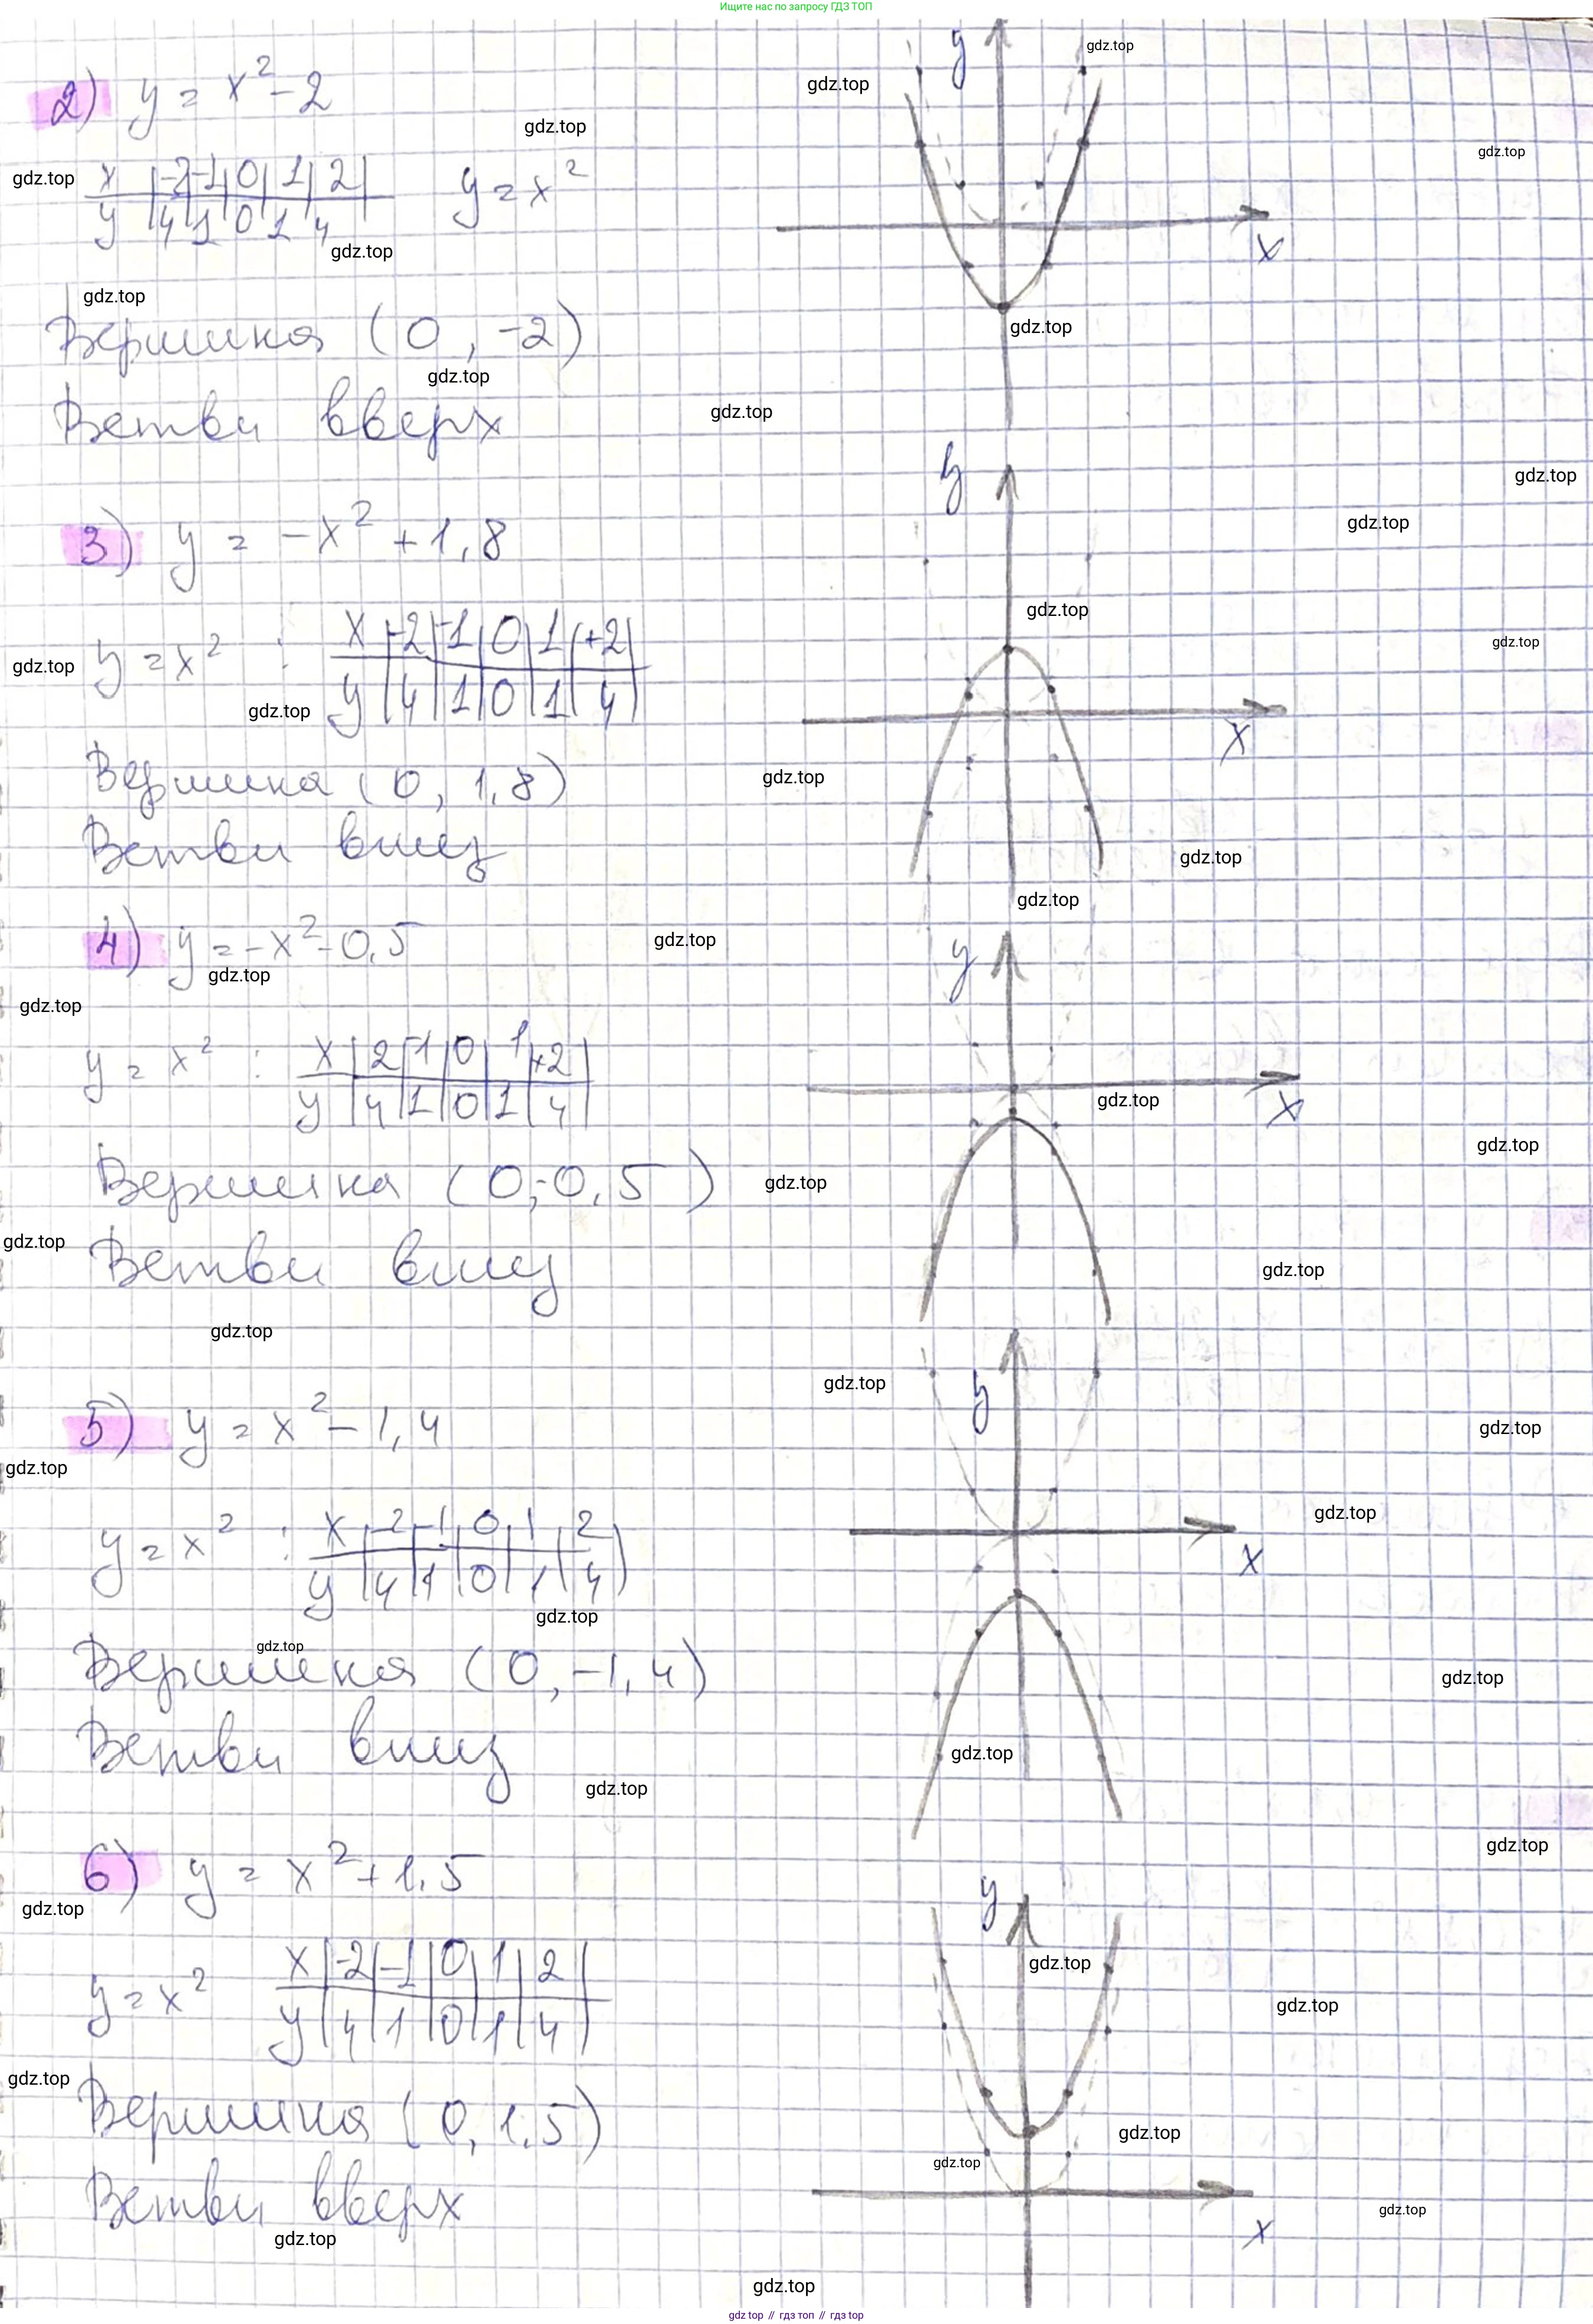 Ищите нас по запросу ГДЗ ТОП
2) y = x² - 2
x | -2 | -1 | 0 | 1 | 2 |
y | 4 | 1 | 0 | 1 | 4
y = x²
Вершина (0, -2)
Ветви вверх
y
x
3) y = -x² + 1,8
y = x² : x | -2 | -1 | 0 | 1 | +2 |
y | 4 | 1 | 0 | 1 | 4 |
Вершина (0, 1,8)
Ветви вниз
y
x
4) y = -x² - 0,5
y = x² : x | 2 | -1 | 0 | 1 | +2 |
y | 4 | 1 | 0 | 1 | 4 |
Вершина (0; -0,5)
Ветви вниз
y
x
5) y = x² - 1,4
y = x² : x | -2 | -1 | 0 | 1 | 2
y | 4 | 1 | 0 | 1 | 4 |
Вершина (0, -1,4)
Ветви вниз
y
x
6) y = x² + 1,5
y = x² x | -2 | -1 | 0 | 1 | 2 |
y | 4 | 1 | 0 | 1 | 4 |
Вершина (0, 1,5)
Ветви вверх
y
x
gdz.top
gdz.top // гдз топ // gdz.top